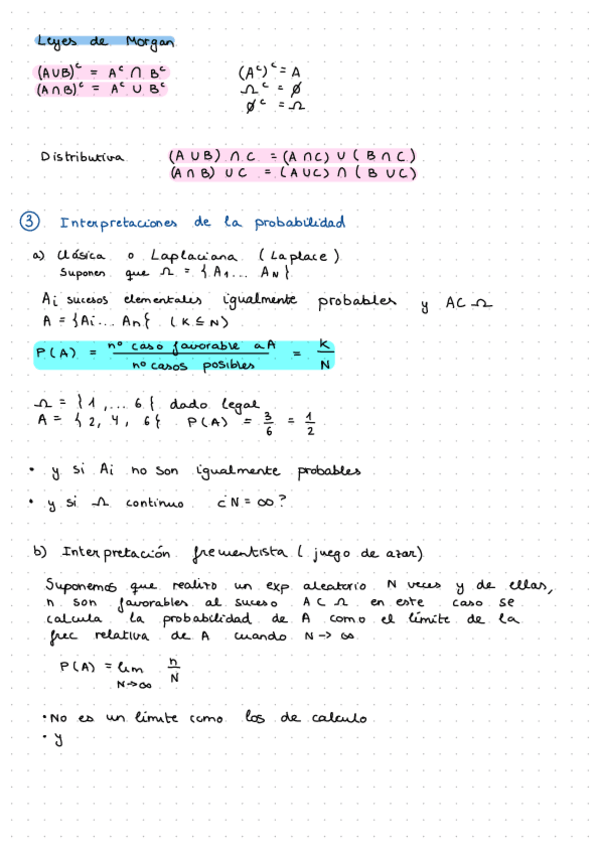 Leyes de Morgan
(A∪B)ᶜ = Aᶜ ∩ Bᶜ (Aᶜ)ᶜ = A
(A∩B)ᶜ = Aᶜ ∪ Bᶜ Ωᶜ = ∅
∅ᶜ = Ω
Distributiva (A ∪ B) ∩ C = (A ∩ C) ∪ (B ∩ C)
(A ∩ B) ∪ C = (A ∪ C) ∩ (B ∪ C)
③ Interpretaciones de la probabilidad
a) Clásica o Laplaciana (Laplace)
Supones que Ω = {A₁... A_N}
Ai sucesos elementales igualmente probables y A ⊂ Ω
A = {Ai... An{ (K ≤ N)
P(A) = nº caso favorable a A / nº casos posibles = K/N
Ω = }1,...6{ dado legal
A = {2, 4, 6{ P(A) = 3/6 = 1/2
• y si Ai no son igualmente probables
• y si Ω continuo ¿N = ∞?
b) Interpretación frewentista (juego de azar)
Suponemos que realizo un exp aleatorio N veces y de ellas,
n son favorables al suceso A ⊂ Ω en este caso se
calcula la probabilidad de A como el límite de la
frec relativa de A cuando N → ∞
P(A) = lim n/N
N→∞
• No es un límite como los de calculo
• y